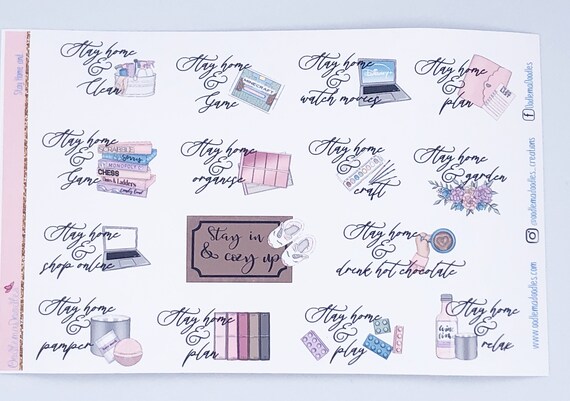 Stay Home and
Stay home
&
Clean
Stay home
&
Game
MINECRAFT
Stay home
&
watch movies
Disney+
Stay home
&
plan
Stay home
&
Game
SCRABBLE
Sorry
MONOPOLY
CHESS
Candy Land
Stay home
&
organise
Stay home
&
craft
Stay home
& garden
Stay home
&
shop online
Stay in
& cozy up
Stay home
&
drink hot chocolate
Stay home
&
pamper
Stay home
&
plan
Stay home
&
play
Stay home
&
relax